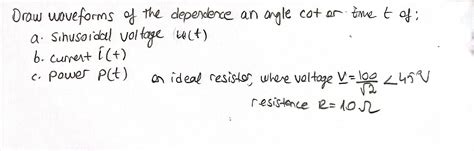 Draw waveforms of the dependence an angle cot or time t of:
a. Sinusoidal voltage u(t)
b. current i(t)
c. Power P(t) on ideal resistor, where voltage V = 100/√2 ∠45°V
resistence R = 10 Ω